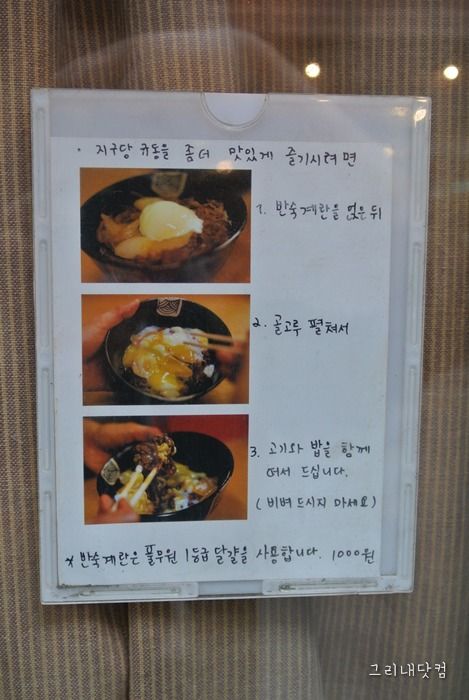 · 지구당 규동을 좀더 맛있게 즐기시려면
1. 반숙계란을 얹은뒤
2. 골고루 펼쳐서
3. 고기와 밥을 함께
떠서 드십니다.
(비벼드시지 마세요)
* 반숙계란은 풀무원 1등급 달걀을 사용합니다. 1000원
그리내닷컴